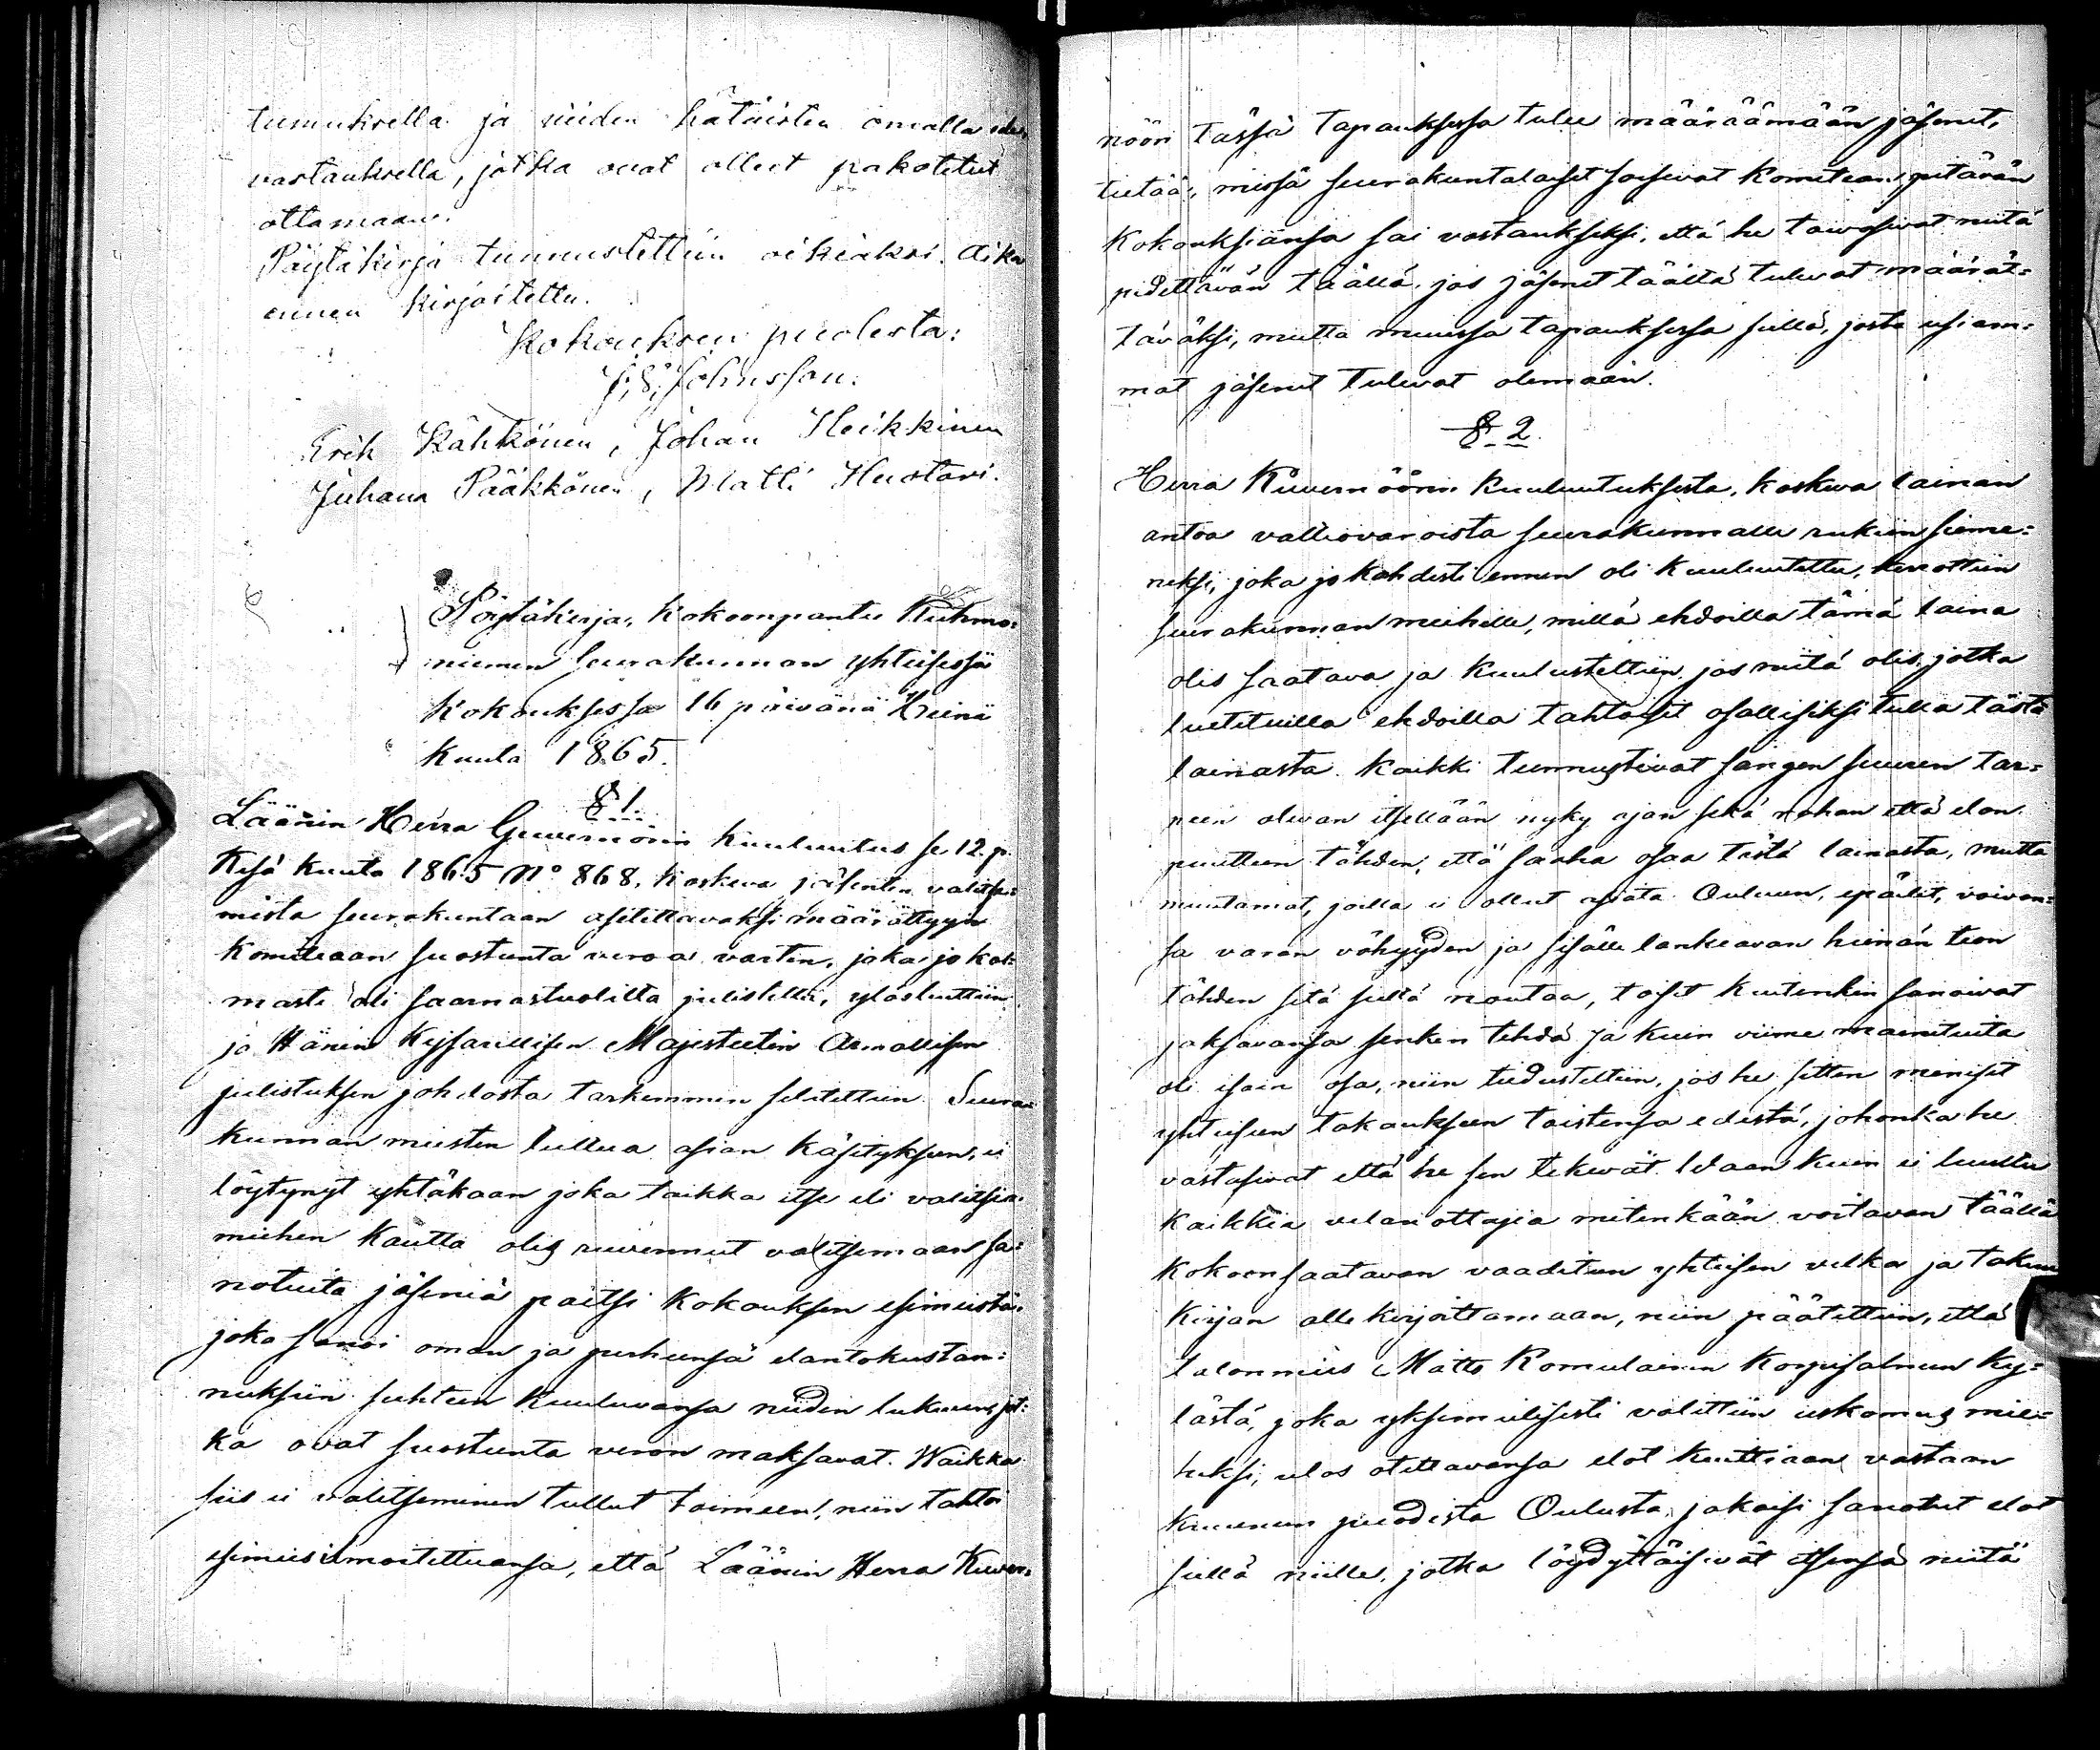 tumuksella ja niiden hätäisten omalla edes
vastauksella, jotka ovat olleet pakotetut
ottamaan.
Pöytäkirja tunnustettiin oikiaksi. Aika
ennen kirjoitettu.
Kokouksen puolesta:
Johnsson.
Erik Kähkönen, Johan Heikkinen
Juhana Pääkkönen, Matti Huotari.
Pöytäkirja, kokoonpantu Kuhmo=
niemen seurakunnan yhteisessä
kokouksessa 16 päivänä Heinä
kuuta 1865.
§ 1.
Läänin Herra Guvernörin kuulutus se 12. p.
Kesä kuuta 1865 No 868, koskeva jäsenten valitse=
mista seurakuntaan asetettavaksi määrättyyn
Komiteaan suostunta veroa varten, joka jo kol=
masti oli saarnastuolilta julistettu, ylösluettiin
ja Hänen Keisarillisen Majesteetin Armollisen
julistuksen johdosta tarkemmin selitettiin. Seura=
kunnan miesten tultua asian käsitykseen, ei
löytynyt yhtäkään joka taikka itse eli valitsia=
miehen kautta olis ruvennut valitsemaan sa=
notuita jäseniä paitsi Kokouksen esimiestä,
joka sanoi oman ja perheensä elantokustan=
nuksiin suhteen kuuluvansa niiden lukuun, jot=
ka ovat suostunta veron maksavat. Waikka
siis ei valitseminen tullut toimeen, niin tahtoi
esimies ilmoitettuansa, että Läänin Herra Kuver=
nöön tässä tapauksessa tulee määräämään jäsenet,
tietää, missä seurakuntalaiset soisivat Komitean pitävän
Kokouksiansa sai vastaukseksi, että he toivoisivat niitä
pidettävän täällä, jos jäsenet täältä tulevat määrät=
täväksi, mutta muussa tapauksessa siellä, josta usiam=
mat jäsenet tulevat olemaan.
§ 2.
Herra Kuvernöörin Kuulutuksesta, koskeva lainan
antoa valtiovaroista seurakunnalle rukiin sieme=
neksi, joka jo kahdesti ennen oli kuulutettu, kerrottiin
seurakunnan miehille, millä ehdoilla tämä laina
olis saatava ja kuulusteltiin, jos niitä olis, jotka
luetetuilla ehdoilla tahtoisit osallisiksi tulla tästä
lainasta. Kaikki tunnustivat sangen suuren tar=
peen olevan itsellään nyky ajan sekä rahan että elon
puutteen tähden, että saaha osaa tästä lainasta, mutta
muutamat, joilla ei ollut asiata Ouluun, epäilit, voivan=
sa varan vähyyden ja sisälle lankeavan heinän teon
tähden sitä sieltä noutaa, toiset kuitenkin sanoivat
jaksavansa senkin tehdä ja kuin viime mainituita
oli isoin osa, niin tiedusteltiin, jos he sitten menisit
yhteiseen takaukseen toistensa edestä, johonka he
vastasivat että he sen tekevät. Waan kuin ei luultu
kaikkia velan ottajia mitenkään voitavan täällä
kokoonsaatavan vaaditun yhteisen velka ja takuu
kirjan alle kirjoittamaan, niin päätettiin, että
talonmies Matts Romulainen Korpisalmen ky=
lästä, joka yksimielisesti valittiin uskomus mie=
heksi, ulos otettavansa elot kuittiaan vastaan
kruunun puodista Oulusta, jakaisi sanotut elot
siellä niille, jotka löydyttäisivät itsensä niitä